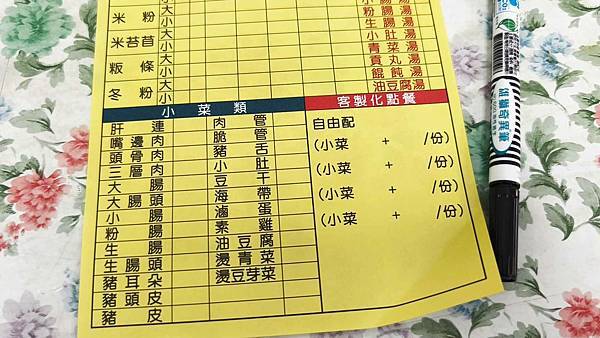 大
米粉 小 粉腸湯 小腸湯
大 生腸湯
米苔苜 小 小肚湯
大 青菜湯
粄條 小 貢丸湯
大 餛飩湯
冬粉 小 油豆腐湯
小菜類 客製化點餐
肝連 肉管 自由配
嘴邊肉 脆管 (小菜 + /份)
頭骨肉 豬舌
三層肉 小肚 (小菜 + /份)
大腸 豆干
大腸頭 海帶 (小菜 + /份)
小腸 滷蛋
粉腸 素雞 (小菜 + /份)
生腸 油豆腐
生腸頭 燙青菜
豬耳朵 燙豆芽菜
豬頭皮
豬皮
雄獅奇異筆